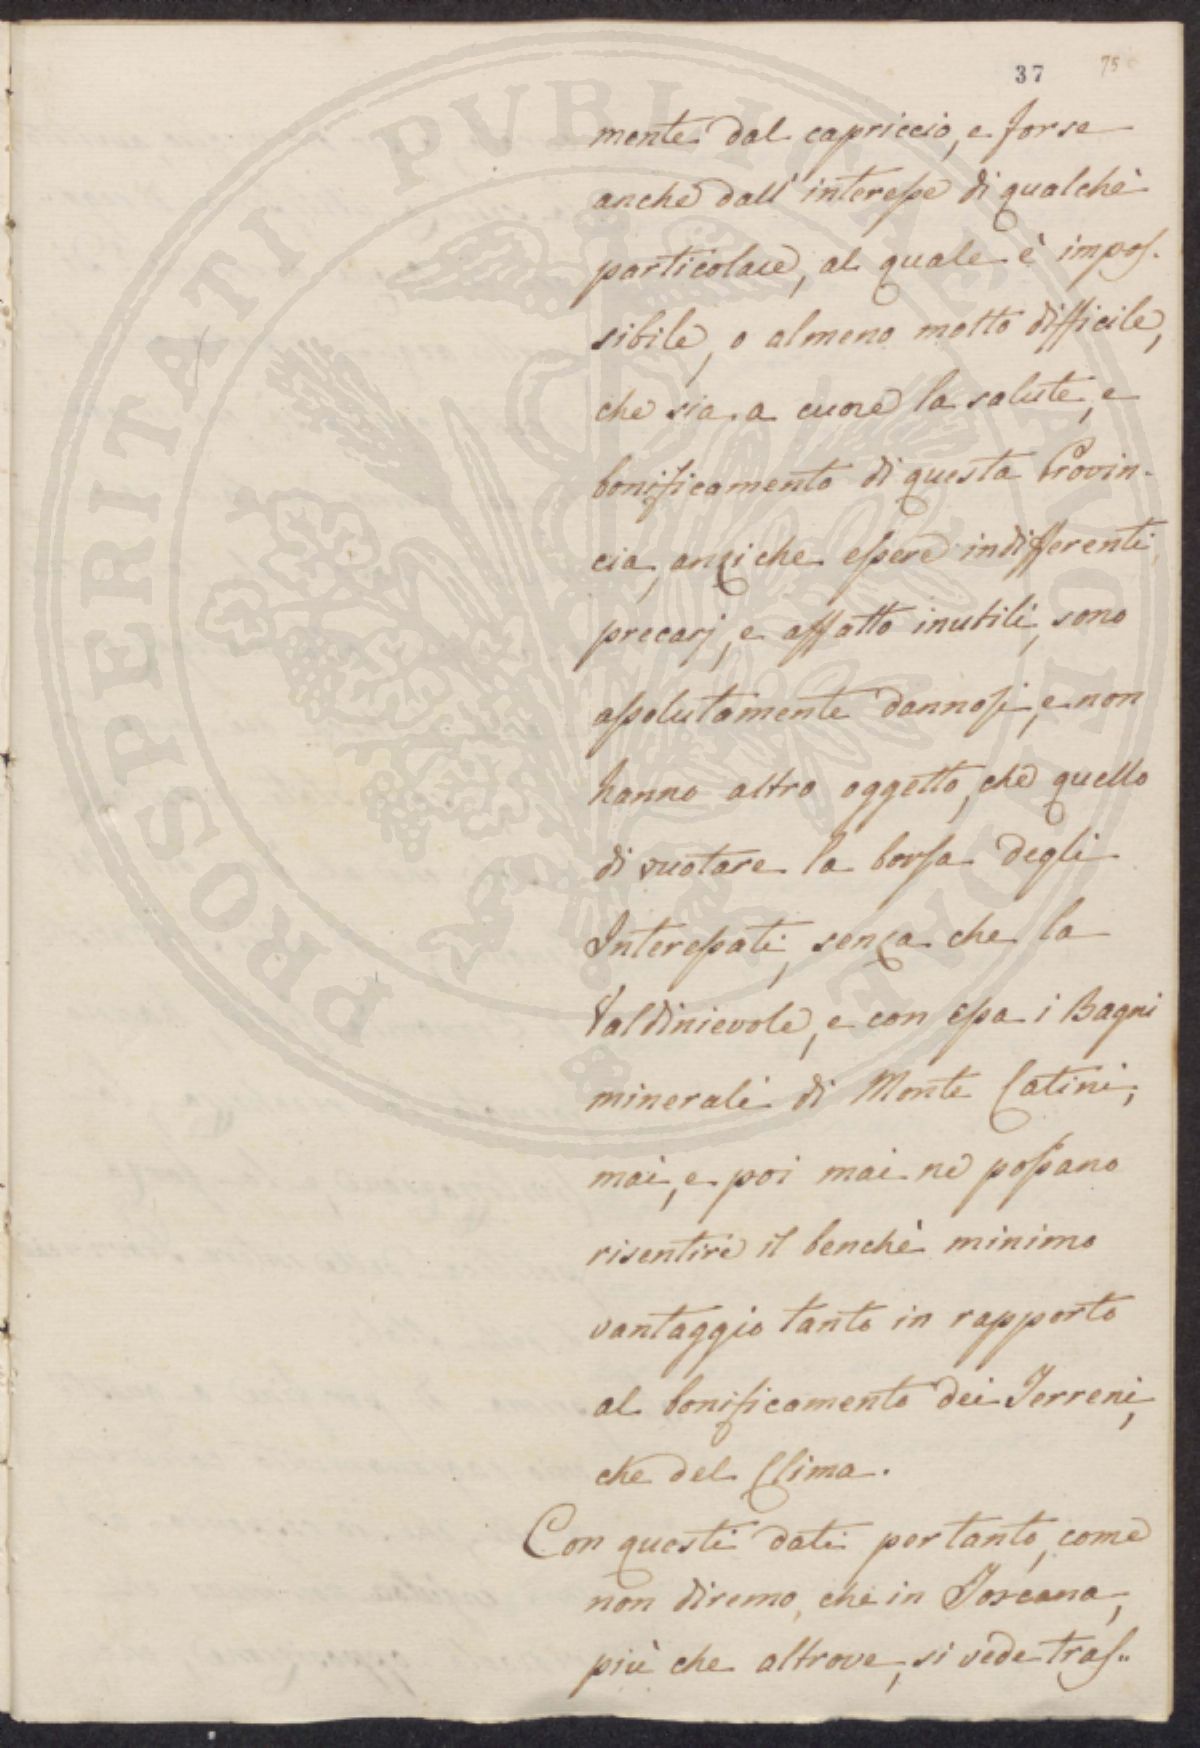 37 75
mente dal capriccio, e forse
anche dall' interesse di qualche
particolare, al quale è impos-
sibile, o almeno molto difficile,
che sia a cuore la salute, e
bonificamento di questa Provin-
cia, anziche essere indifferenti,
precarj, e affatto inutili, sono
assolutamente dannosi, e non
hanno altro oggetto, che quello
di vuotare la borsa degli
Interessati, senza che la
Valdinievole, e con essa i Bagni
minerali di Monte Catini,
mai, e poi mai ne possano
risentire il benchè minimo
vantaggio tanto in rapporto
al bonificamento dei Terreni,
che del Clima.
Con questi dati per tanto, come
non diremo, che in Toscana,
più che altrove, si vede tras-
PROSPERITATI PUBLICAE